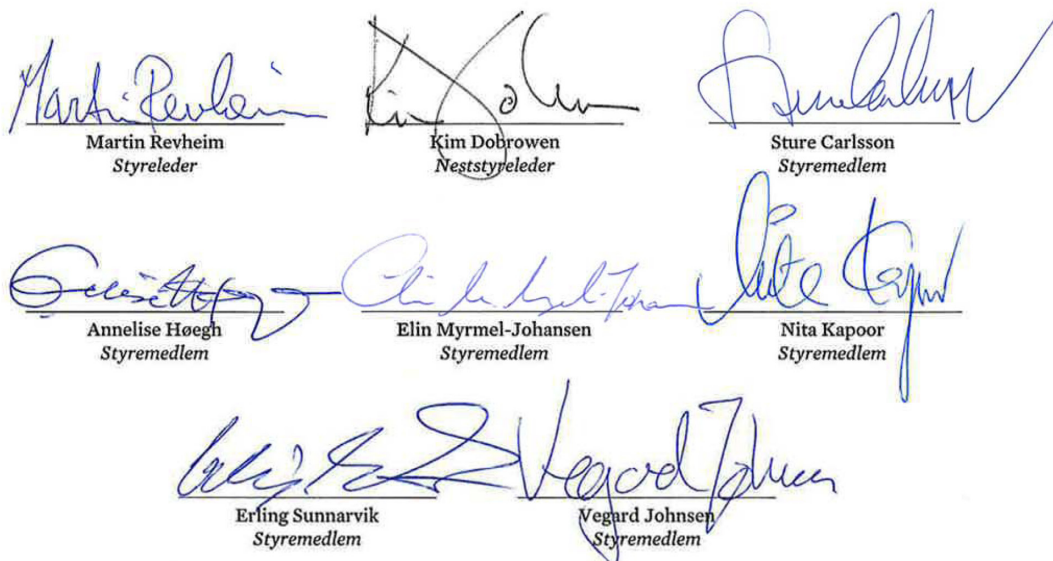 Martin Revheim
Martin Revheim
Styreleder
Kim Dobrowen
Neststyreleder
Sture Carlsson
Styremedlem
Annelise Høegh
Styremedlem
Elin Myrmel-Johansen
Styremedlem
Nita Kapoor
Styremedlem
Erling Sunnarvik
Styremedlem
Vegard Johnsen
Vegard Johnsen
Styremedlem